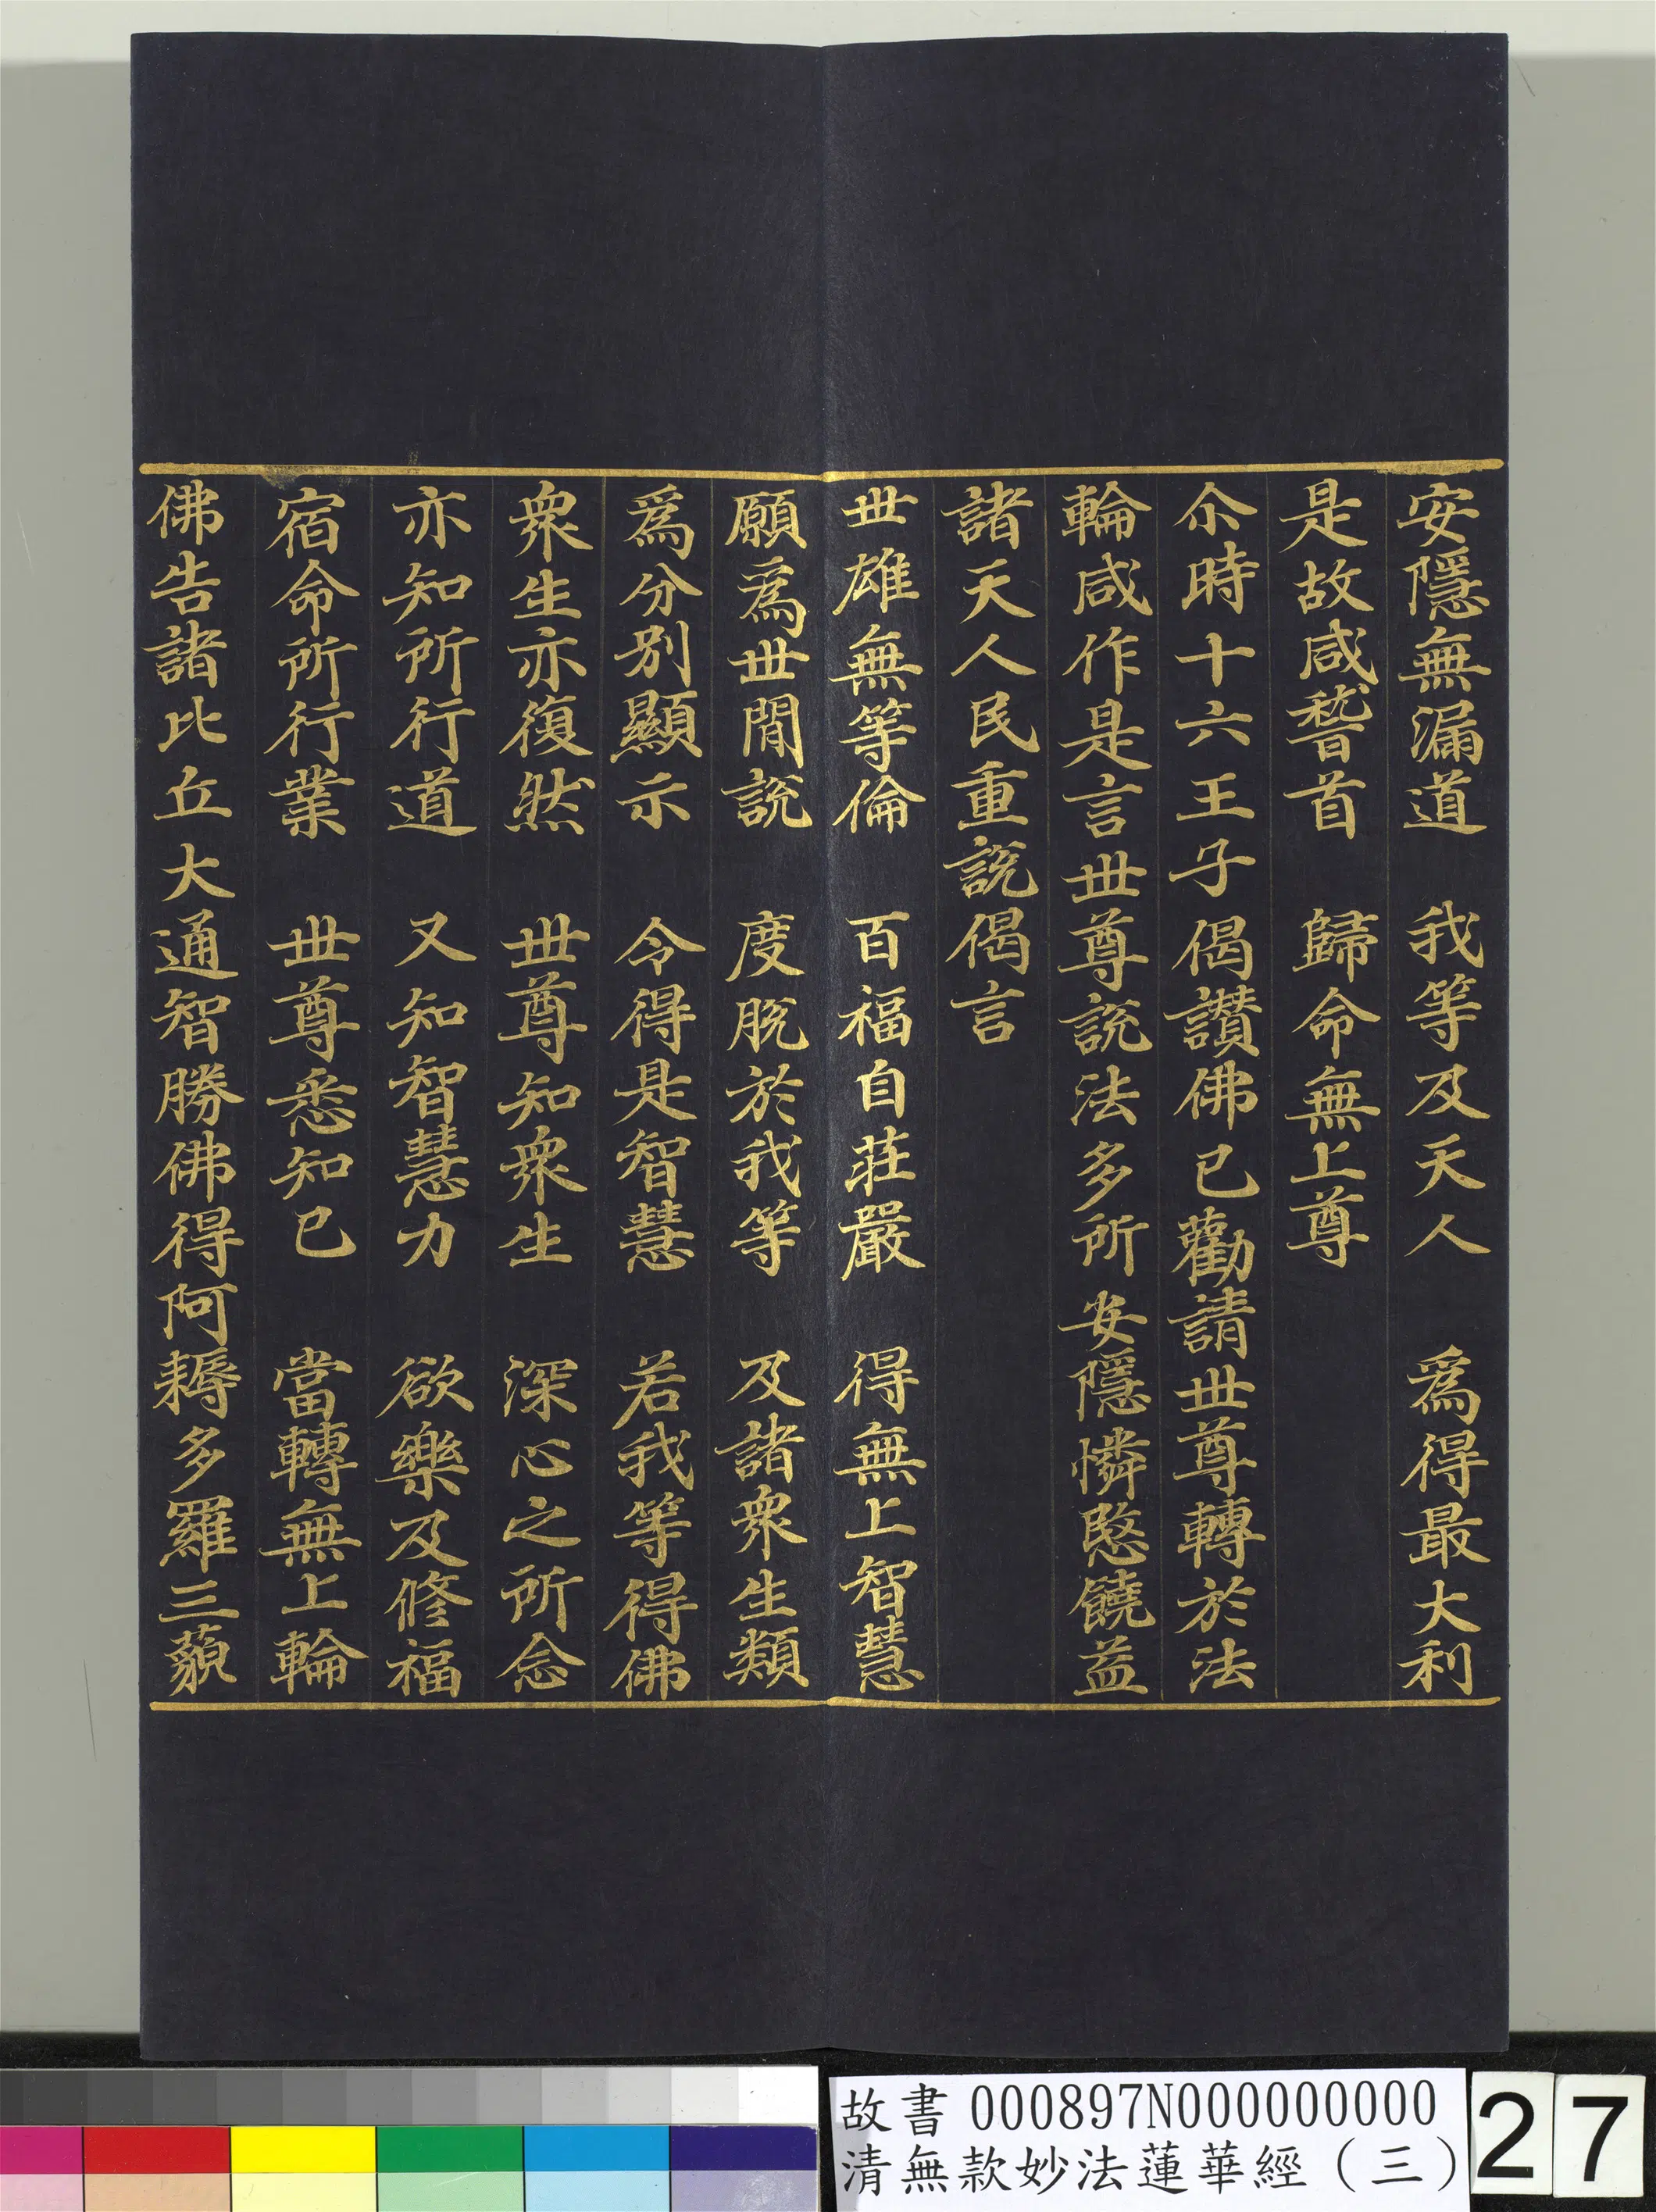 安隱無漏道　我等及天人　爲得最大利
是故咸稽首　歸命無上尊
尒時十六王子偈讚佛已勸請世尊轉於法
輪咸作是言世尊說法多所安隱憐愍饒益
諸天人民重說偈言
世雄無等倫　百福自莊嚴　得無上智慧
願爲世間說　度脫於我等　及諸衆生類
爲分別顯示　令得是智慧　若我等得佛
衆生亦復然　世尊知衆生　深心之所念
亦知所行道　又知智慧力　欲樂及修福
宿命所行業　世尊悉知已　當轉無上輪
佛告諸比丘大通智勝佛得阿耨多羅三藐
故書 000897N000000000
清無款妙法蓮華經（三）
27